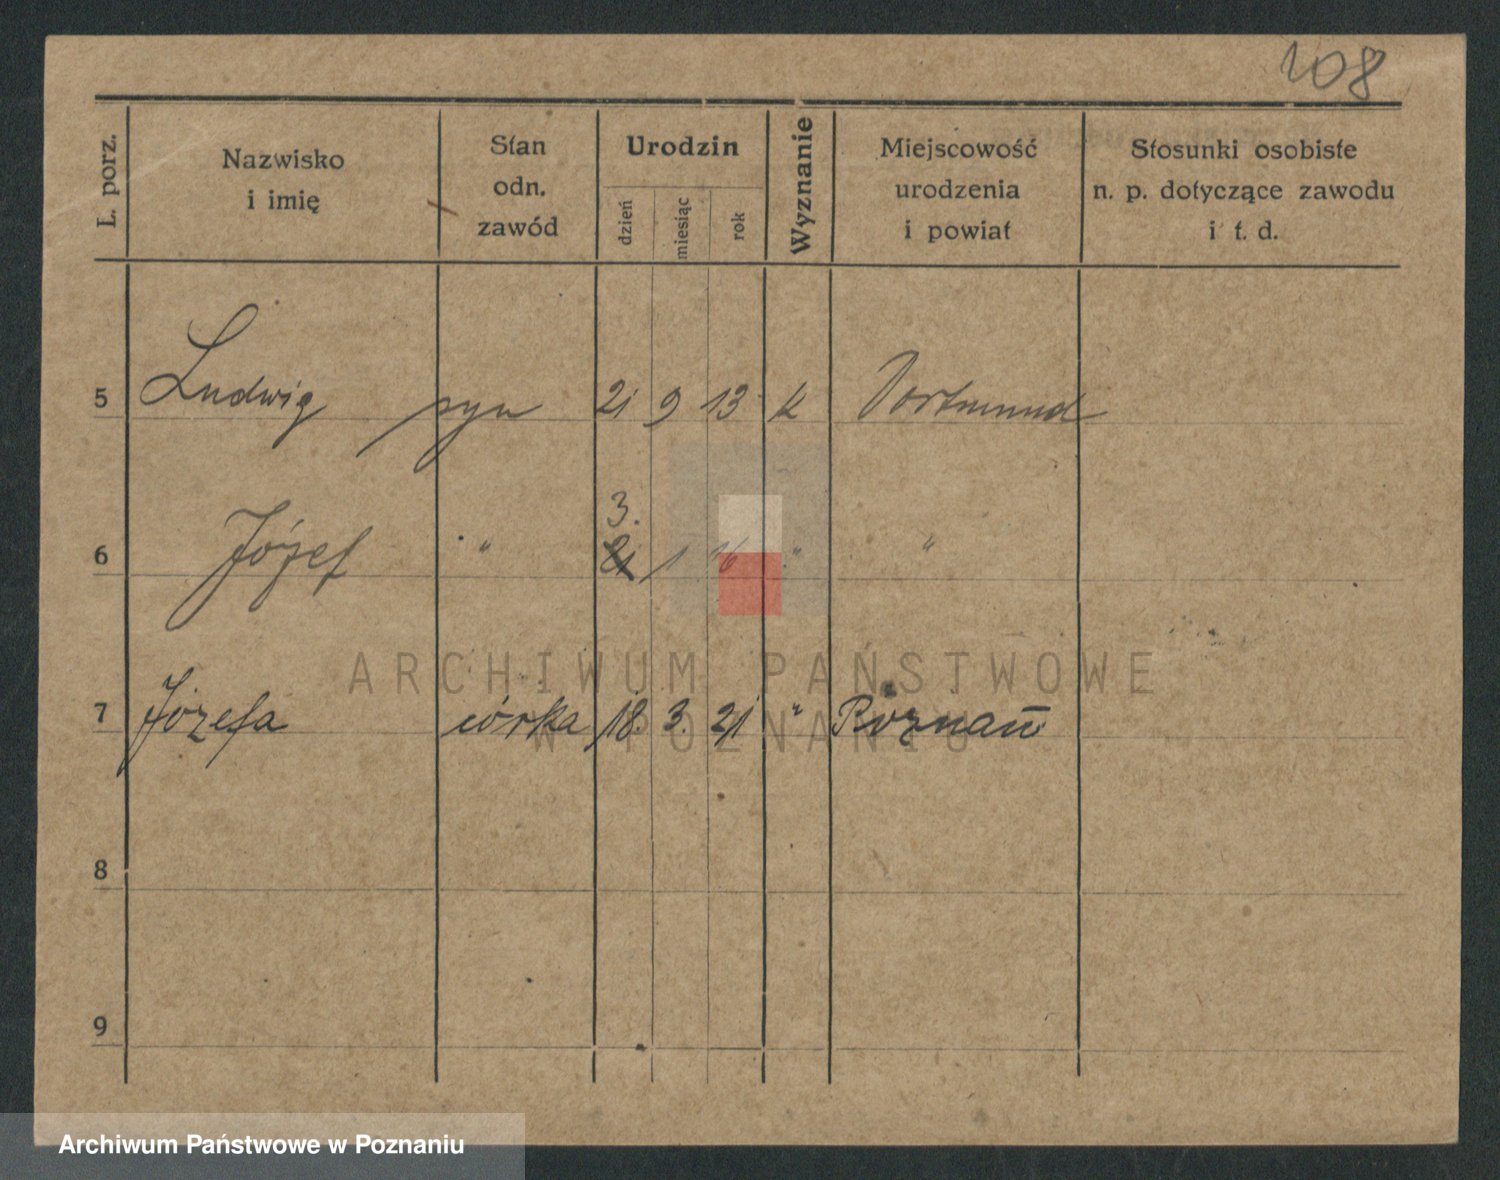 108
L. porz.
Nazwisko
i imię
Stan
odn.
zawód
Urodzin
dzień
miesiąc
rok
Wyznanie
Miejscowość
urodzenia
i powiat
Stosunki osobiste
n. p. dotyczące zawodu
i t. d.
5 Ludwig syn 21 9 13 k Dortmund
3.
6 Józef " 21 1 16 " "
7 Józefa córka 18. 3. 21 " Poznań
8
9
ARCHIWUM PAŃSTWOWE
W POZNANIU
Archiwum Państwowe w Poznaniu